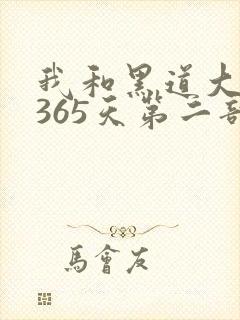 我和黑道大
365天第二部
馬會友